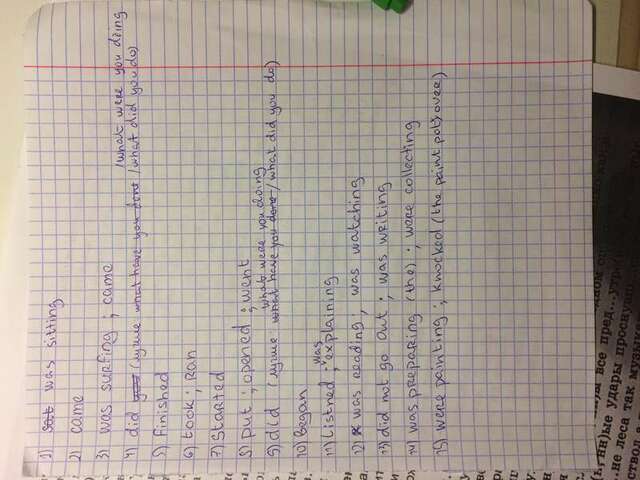 1) was sitting
2) came
3) was surfing ; came
/what were you doing
4) did (лучше: what have you done /what did you do)
5) Finished
6) took ; Ran
7) Started
8) put ; opened ; went
what were you doing
9) did (лучше: what have you done /what did you do)
10) Began
11) listned ; was explaining
12) was reading ; was watching
13) did not go out ; was writing
14) was preparing (the) ; were collecting
15) were painting ; knocked (the paint pot) over)
все пред
ные удары
не леса так